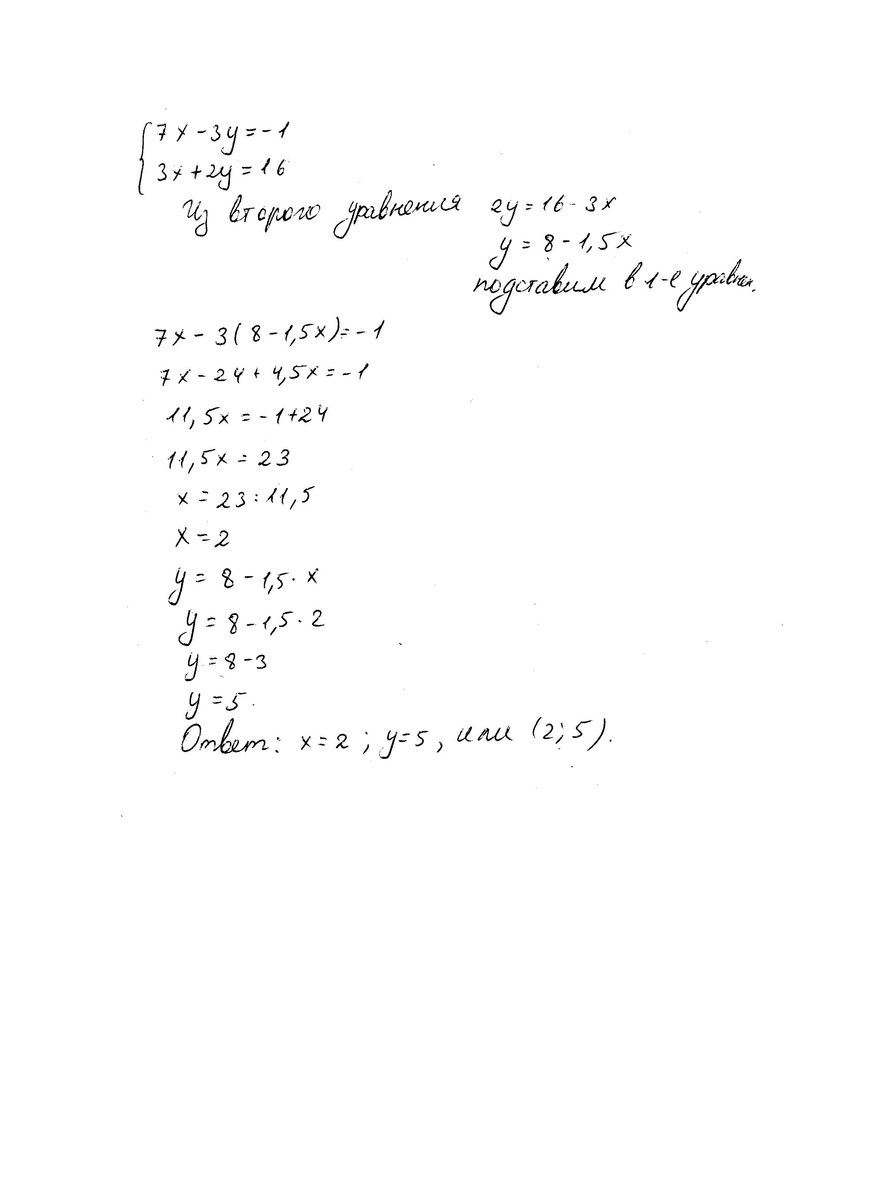 {7x - 3y = -1
3x + 2y = 16
Из второго уравнения 2y = 16 - 3x
y = 8 - 1,5x
подставим в 1-е уравнен.
7x - 3(8 - 1,5x) = -1
7x - 24 + 4,5x = -1
11,5x = -1 + 24
11,5x = 23
x = 23 : 11,5
x = 2
y = 8 - 1,5 · x
y = 8 - 1,5 · 2
y = 8 - 3
y = 5.
Ответ: x = 2 ; y = 5, или (2; 5).